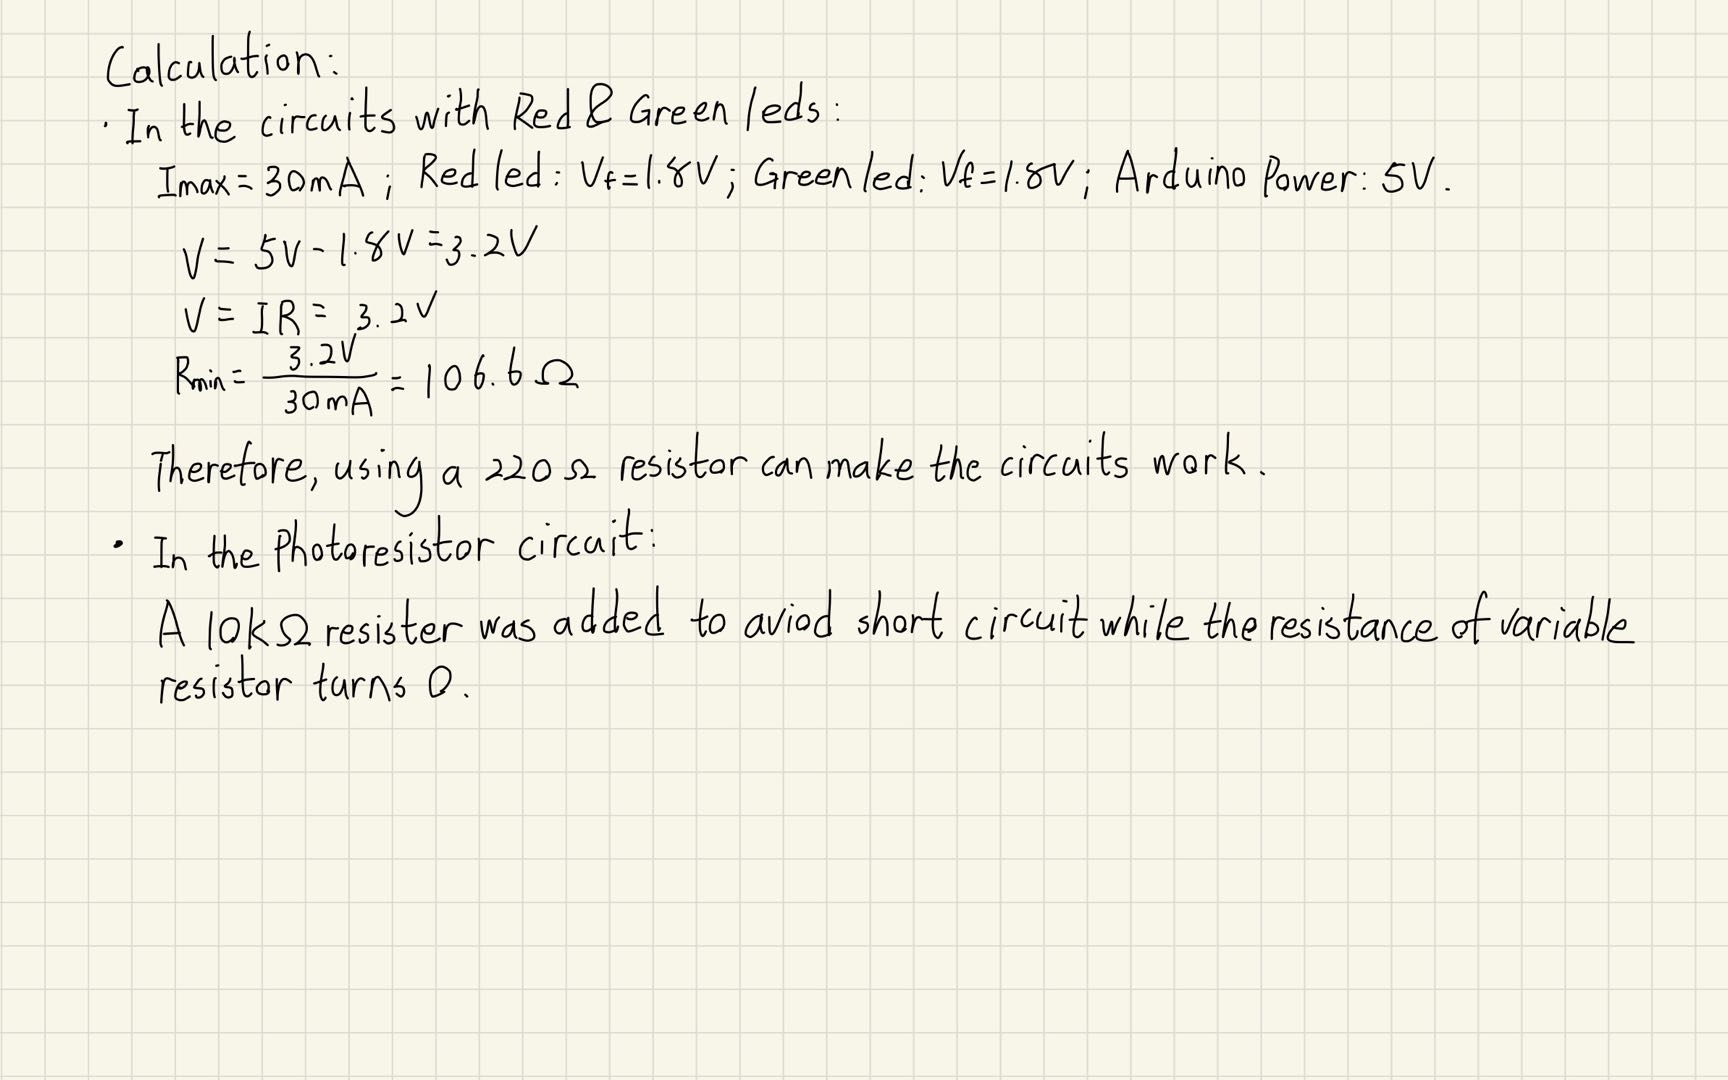 Calculation:
· In the circuits with Red & Green leds:
Imax = 30mA ; Red led: Vf=1.8V; Green led: Vf=1.8V; Arduino Power: 5V.
V = 5V - 1.8V = 3.2V
V = IR = 3.2V
Rmin = 3.2V / 30mA = 106.6 Ω
Therefore, using a 220 Ω resistor can make the circuits work.
· In the Photoresistor circuit:
A 10kΩ resister was added to aviod short circuit while the resistance of variable
resistor turns 0.